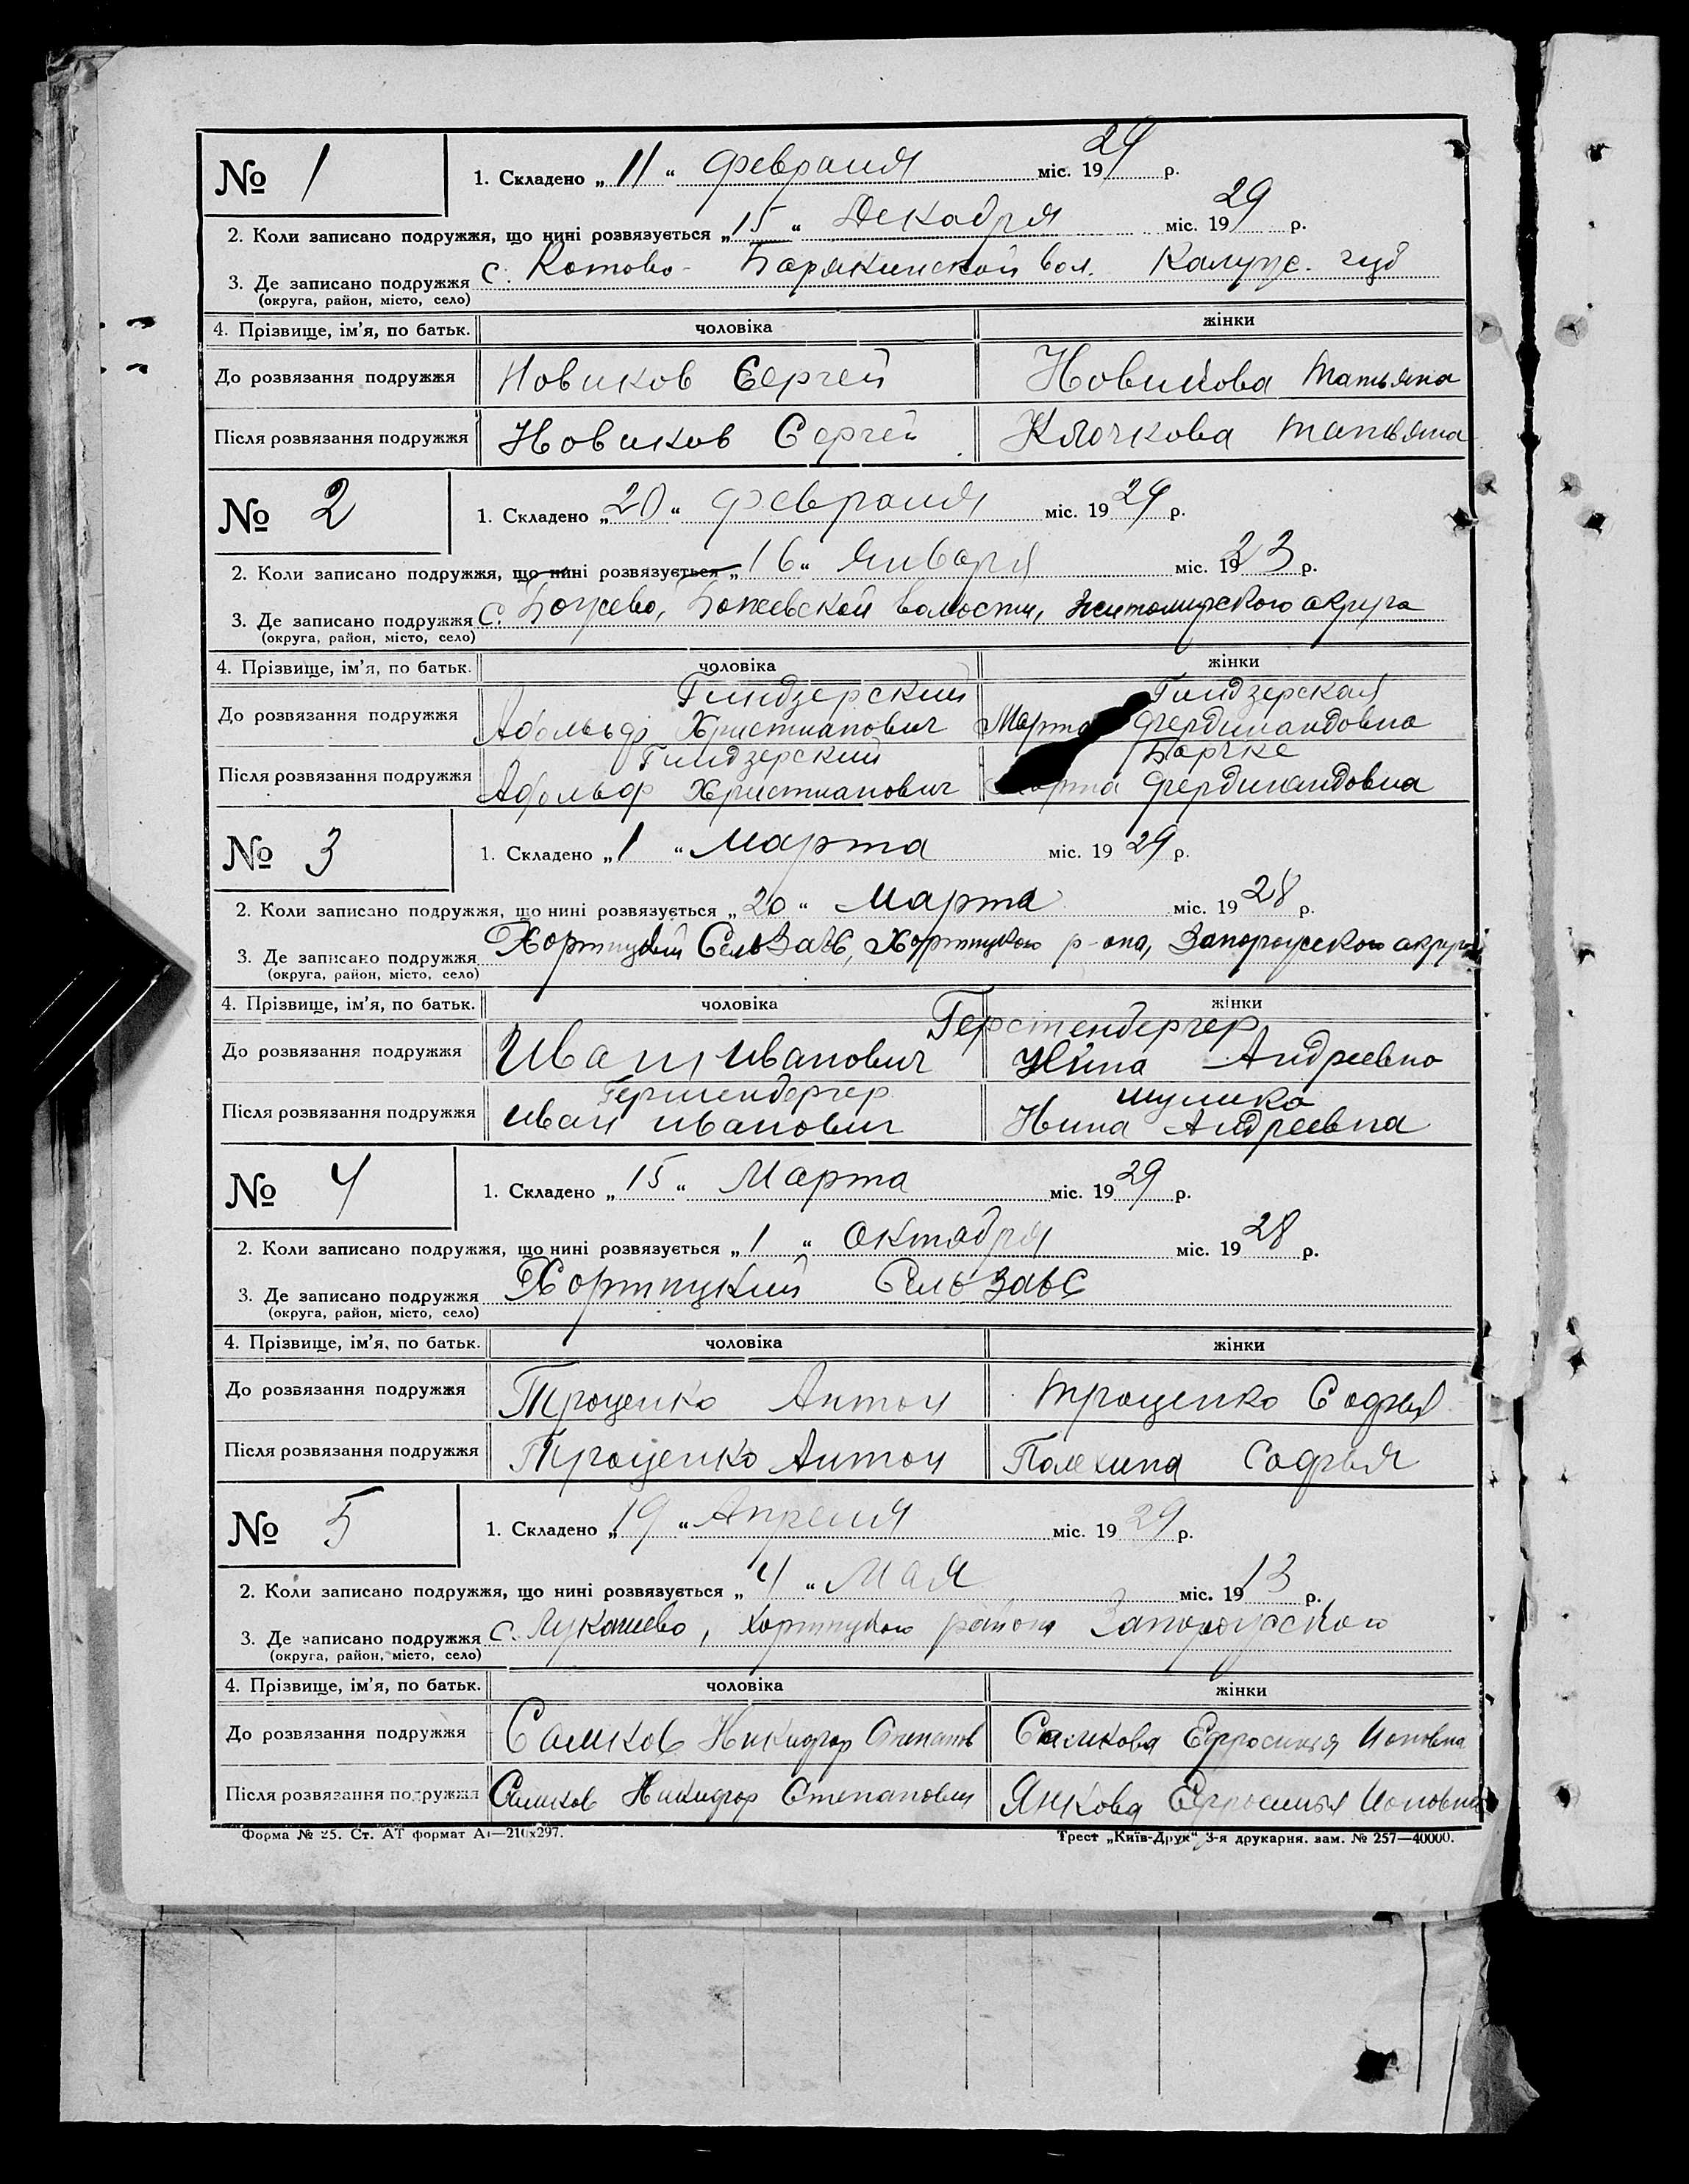 № 1
1. Складено „ 11 “ февраля міс. 1929 р.
2. Коли записано подружжя, що нині розвязується „ 15 “ Декабря міс. 1929 р.
3. Де записано подружжя с. Котово- вол. Калуж. губ
(округа, район, місто, село)
4. Прізвище, ім’я, по батьк. чоловіка жінки
До розвязання подружжя Новиков Сергей Новикова Татьяна
Після розвязання подружжя Новиков Сергей Клочкова Татьяна
№ 2
1. Складено „ 20 “ февраля міс. 1929 р.
2. Коли записано подружжя, що нині розвязується „ 16 “ Января міс. 1923 р.
3. Де записано подружжя с. волости, Житомирского округа
(округа, район, місто, село)
4. Прізвище, ім’я, по батьк. чоловіка жінки
Гиндзерский Гиндзерская
До розвязання подружжя Адольф Христианович Марта Фердинандовна
Гиндзерский Барчке
Після розвязання подружжя Адольф Христианович Марта Фердинандовна
№ 3
1. Складено „ 1 “ Марта міс. 1929 р.
2. Коли записано подружжя, що нині розвязується „ 20 “ Марта міс. 1928 р.
3. Де записано подружжя Хортицкий СельЗАГС, Хортицкого р-она, Запорожского округа
(округа, район, місто, село)
4. Прізвище, ім’я, по батьк. чоловіка жінки
Герстенбергер
До розвязання подружжя Иван Иванович Нина Андреевна
Герштенбергер Шулика
Після розвязання подружжя Иван Иванович Нина Андреевна
№ 4
1. Складено „ 15 “ Марта міс. 1929 р.
2. Коли записано подружжя, що нині розвязується „ 1 “ Октября міс. 1928 р.
3. Де записано подружжя Хортицкий СельЗАГС
(округа, район, місто, село)
4. Прізвище, ім’я, по батьк. чоловіка жінки
До розвязання подружжя Троценко Антон Троценко Софья
Після розвязання подружжя Троценко Антон Полехина Софья
№ 5
1. Складено „ 19 “ Апреля міс. 1929 р.
2. Коли записано подружжя, що нині розвязується „ 4 “ Мая міс. 1913 р.
3. Де записано подружжя с. Лукашево, Хортицкого района Запорожского
(округа, район, місто, село)
4. Прізвище, ім’я, по батьк. чоловіка жінки
До розвязання подружжя Саликов Никифор Степанов Саликова Ефросинья Ионовна
Після розвязання подружжя Саликов Никифор Степанович Янкова Ефросинья Ионовна
Форма № 25. Ст. АТ формат А₁—210x297. Трест „Київ-Друк“ 3-я друкарня. зам. № 257—40000.